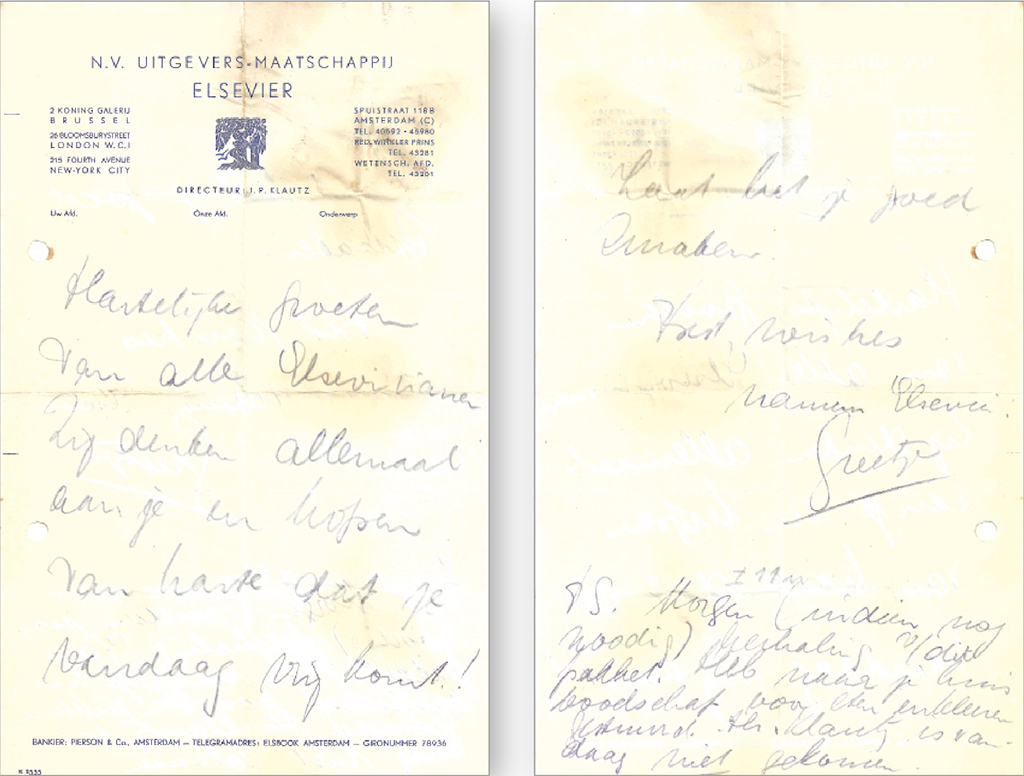 N.V. UITGEVERS-MAATSCHAPPIJ
ELSEVIER
2 KONING GALERIJ
BRUSSEL
26 BLOOMSBURYSTREET
LONDON W.C.1
215 FOURTH AVENUE
NEW-YORK CITY
SPUISTRAAT 118B
AMSTERDAM (C)
TEL. 40592 • 46980
RED. WINKLER PRINS
TEL. 43281
WETENSCH. AFD.
TEL. 43201
DIRECTEUR J. P. KLAUTZ
Uw Afd.
Onze Afd.
Onderwerp
Hartelijke groeten
Van alle Elsevirianen
Zij denken allemaal
aan je en hopen
van harte dat je
vandaag vrij komt!
BANKIER: PIERSON & Co., AMSTERDAM — TELEGRAMADRES: ELSBOOK AMSTERDAM — GIRONUMMER 78936
K 2535
Laat het je goed
smaken.
Best wishes
namens Elsevier.
Greetje
PS. Morgen (indien nog
noodig) herhaling v/dit
pakket. Heb naar je huis
boodschap voor eten en kleeren
gestuurd. Hr. Klautz is van-
daag niet gekomen.